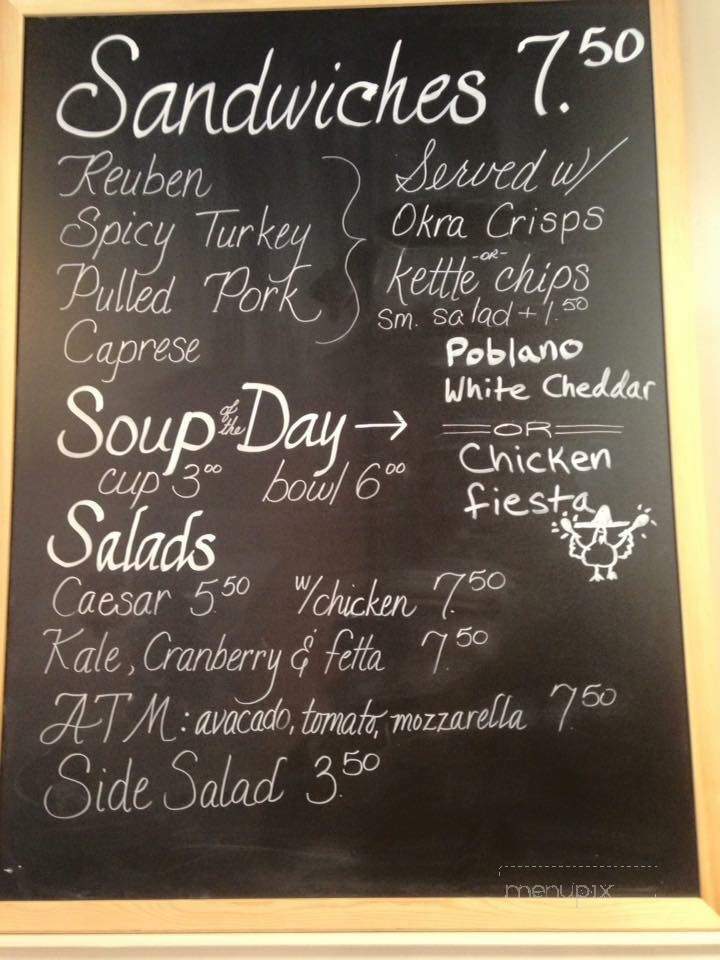 Sandwiches 7.50
Reuben
Spicy Turkey
Pulled Pork
Caprese
Served w/
Okra Crisps
-OR-
kettle chips
sm. salad + 1.50
Soup of the Day →
cup 3.00 bowl 6.00
Poblano
White Cheddar
OR
Chicken
fiesta
Salads
Caesar 5.50 w/chicken 7.50
Kale, Cranberry & fetta 7.50
ATM: avacado, tomato, mozzarella 7.50
Side Salad 3.50
menupix